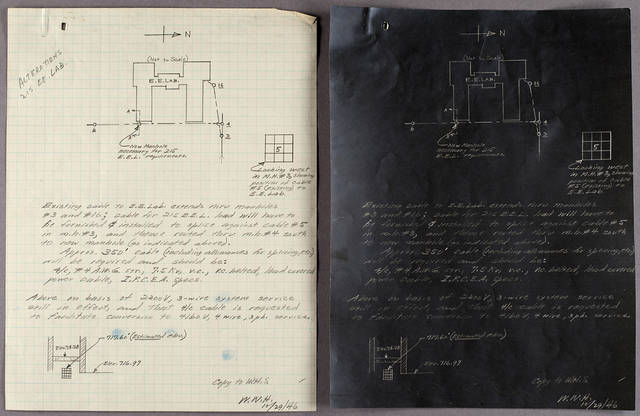 ALTERATIONS
215 EE LAB.
N
(Not to Scale)
E.E. LAB.
16
4
6
3
New Manhole
necessary for 215
E.E.L. requirements.
5
Looking west
in M.H. #3, showing
position of cable
#5 (existing) to
E.E. Lab.
Existing cable to E.E. Lab. extends thru manholes
#3 and #16; cable for 215 E.E.L. load will have to
be furnished & installed to splice against cable #5
in m.h. #3, and thence routed thru m.h. #4 south
to new manhole (as indicated above).
Approx. 350' cable (including allowances for splicing, etc)
will be required and should be:
4/c, #4 A.W.G. str., 7.5 Kv, v.c., no. belted, lead covered
power cable, I.P.C.E.A. specs.
Above on basis of 2400V, 3-wire system service
still in effect, and that 4/c cable is requested
to facilitate conversion to 4160V, 4 wire, 3ph. service.
717.60' (Estimated elev.)
Elev. 716.97
Copy to W.H.S.
W.N.H.
12/29/46
N
(Not to Scale)
E.E. LAB.
16
4
6
3
New Manhole
necessary for 215
E.E.L. requirements.
5
Looking west
in M.H. #3, showing
position of cable
#5 (existing) to
E.E. Lab.
Existing cable to E.E. Lab. extends thru manholes
#3 and #16; cable for 215 E.E.L. load will have to
be furnished & installed to splice against cable #5
in m.h. #3, and thence routed thru m.h. #4 south
to new manhole (as indicated above).
Approx. 350' cable (including allowances for splicing, etc)
will be required and should be:
4/c, #4 A.W.G. str., 7.5 Kv, v.c., no. belted, lead covered
power cable, I.P.C.E.A. specs.
Above on basis of 2400V, 3-wire system service
still in effect, and that 4/c cable is requested
to facilitate conversion to 4160V, 4 wire, 3ph. service.
717.60' (Estimated elev.)
Elev. 716.97
Copy to W.H.S.
W.N.H.
12/29/46